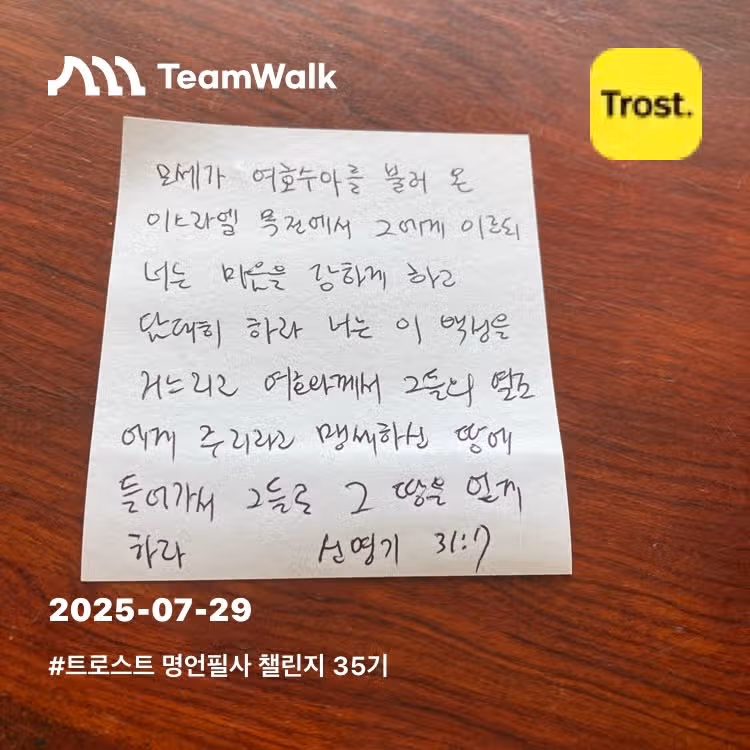 TeamWalk
Trost.
모세가 여호수아를 불러 온
이스라엘 목전에서 그에게 이르되
너는 마음을 강하게 하고
담대히 하라 너는 이 백성을
거느리고 여호와께서 그들의 열조
에게 주리라고 맹세하신 땅에
들어가서 그들로 그 땅을 얻게
하라 신명기 31:7
2025-07-29
#트로스트 명언필사 챌린지 35기